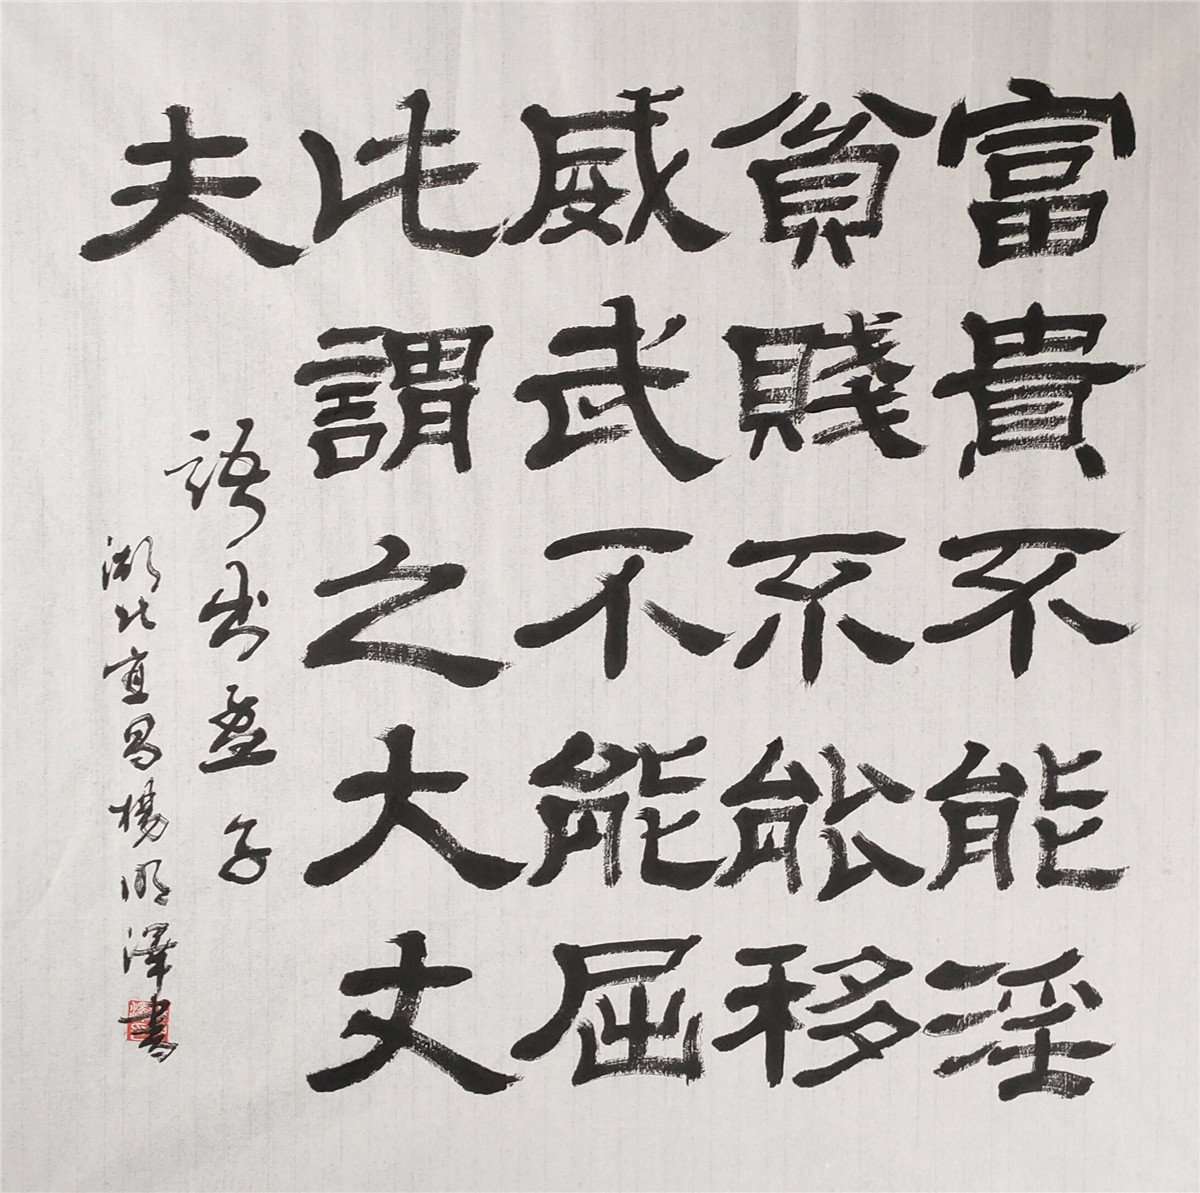 富貴不能淫
貧賤不能移
威武不能屈
此謂之大丈
夫
語出孟子
湖北宜昌楊明澤書